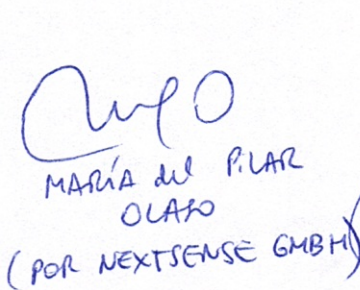 MARÍA del PILAR
OLASO
(POR NEXTSENSE GMBH)